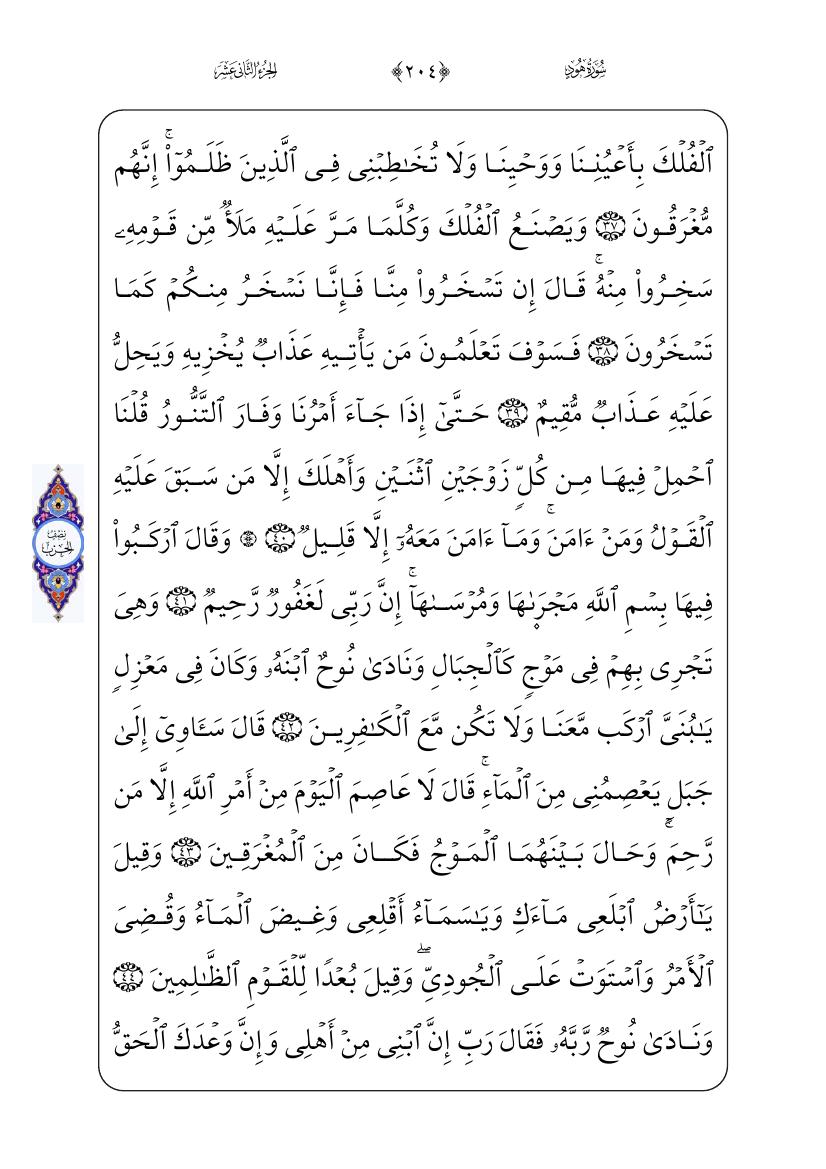 سُورَةُ هُودٍ
﴿٢٠٤﴾
الجزء الثاني عشر
ٱلۡفُلۡكَ بِأَعۡيُنِنَا وَوَحۡيِنَا وَلَا تُخَٰطِبۡنِي فِي ٱلَّذِينَ ظَلَمُوٓاْۚ إِنَّهُم
مُّغۡرَقُونَ ٣٧ وَيَصۡنَعُ ٱلۡفُلۡكَ وَكُلَّمَا مَرَّ عَلَيۡهِ مَلَأٞ مِّن قَوۡمِهِۦ
سَخِرُواْ مِنۡهُۚ قَالَ إِن تَسۡخَرُواْ مِنَّا فَإِنَّا نَسۡخَرُ مِنكُمۡ كَمَا
تَسۡخَرُونَ ٣٨ فَسَوۡفَ تَعۡلَمُونَ مَن يَأۡتِيهِ عَذَابٞ يُخۡزِيهِ وَيَحِلُّ
عَلَيۡهِ عَذَابٞ مُّقِيمٌ ٣٩ حَتَّىٰٓ إِذَا جَآءَ أَمۡرُنَا وَفَارَ ٱلتَّنُّورُ قُلۡنَا
ٱحۡمِلۡ فِيهَا مِن كُلّٖ زَوۡجَيۡنِ ٱثۡنَيۡنِ وَأَهۡلَكَ إِلَّا مَن سَبَقَ عَلَيۡهِ
ٱلۡقَوۡلُ وَمَنۡ ءَامَنَۚ وَمَآ ءَامَنَ مَعَهُۥٓ إِلَّا قَلِيلٞ ٤٠ ۞ وَقَالَ ٱرۡكَبُواْ
فِيهَا بِسۡمِ ٱللَّهِ مَجۡرٜىٰهَا وَمُرۡسَىٰهَآۚ إِنَّ رَبِّي لَغَفُورٞ رَّحِيمٞ ٤١ وَهِيَ
تَجۡرِي بِهِمۡ فِي مَوۡجٖ كَٱلۡجِبَالِ وَنَادَىٰ نُوحٌ ٱبۡنَهُۥ وَكَانَ فِي مَعۡزِلٖ
يَٰبُنَيَّ ٱرۡكَب مَّعَنَا وَلَا تَكُن مَّعَ ٱلۡكَٰفِرِينَ ٤٢ قَالَ سَـَٔاوِيٓ إِلَىٰ
جَبَلٖ يَعۡصِمُنِي مِنَ ٱلۡمَآءِۚ قَالَ لَا عَاصِمَ ٱلۡيَوۡمَ مِنۡ أَمۡرِ ٱللَّهِ إِلَّا مَن
رَّحِمَۚ وَحَالَ بَيۡنَهُمَا ٱلۡمَوۡجُ فَكَانَ مِنَ ٱلۡمُغۡرَقِينَ ٤٣ وَقِيلَ
يَٰٓأَرۡضُ ٱبۡلَعِي مَآءَكِ وَيَٰسَمَآءُ أَقۡلِعِي وَغِيضَ ٱلۡمَآءُ وَقُضِيَ
ٱلۡأَمۡرُ وَٱسۡتَوَتۡ عَلَى ٱلۡجُودِيِّۖ وَقِيلَ بُعۡدٗا لِّلۡقَوۡمِ ٱلظَّٰلِمِينَ ٤٤
وَنَادَىٰ نُوحٞ رَّبَّهُۥ فَقَالَ رَبِّ إِنَّ ٱبۡنِي مِنۡ أَهۡلِي وَإِنَّ وَعۡدَكَ ٱلۡحَقُّ
نصف
الحزب